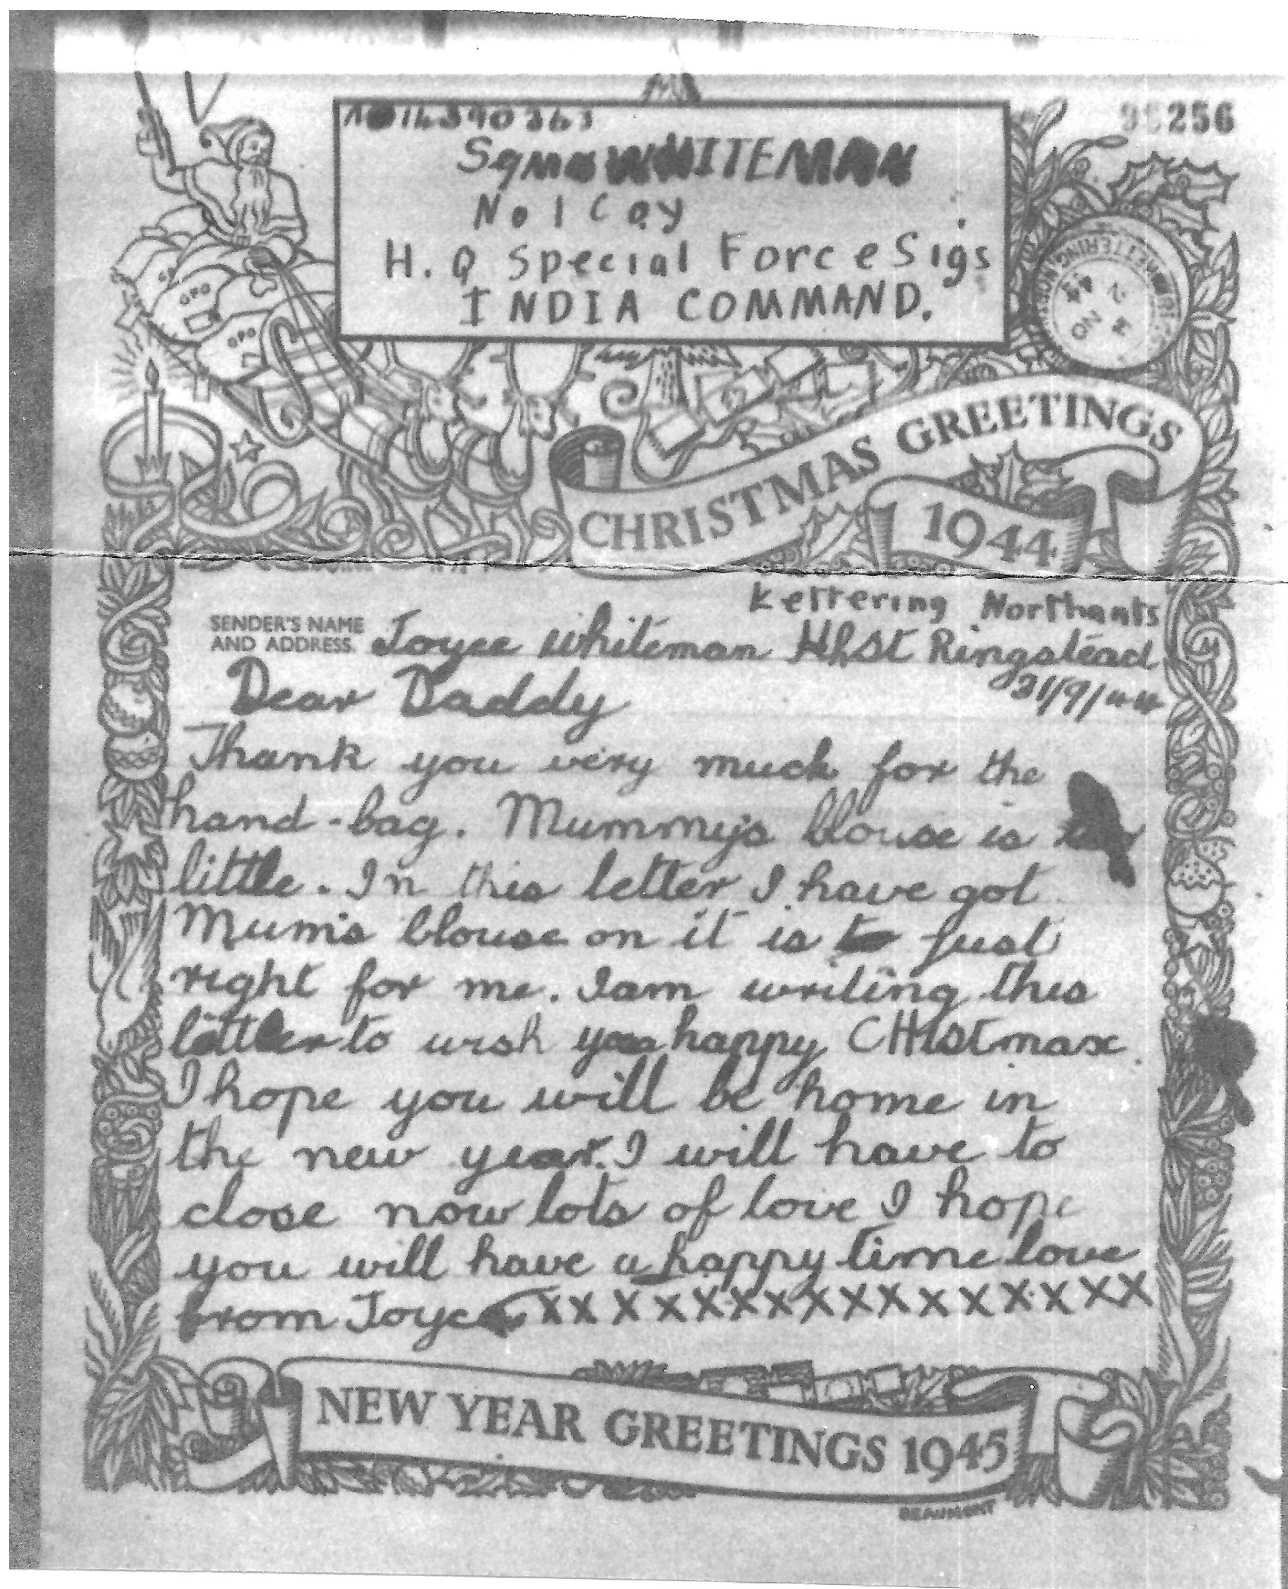 No 14390363
98256
Sgm WHITEMAN
No 1 Coy
H.Q Special Force Sigs
INDIA COMMAND.
KETTERING
2 NO
44
GPO
GPO
CHRISTMAS GREETINGS
1944
Kettering Northants
SENDER'S NAME
AND ADDRESS. Joyce Whiteman H/St Ringstead
21/9/44
Dear Daddy
Thank you very much for the
hand-bag. Mummy's blouse is
little. In this letter I have got
Mum's blouse on it is to just
right for me. I am writing this
letter to wish you happy CHIstmax.
I hope you will be home in
the new year. I will have to
close now lots of love I hope
you will have a happy time love
from Joyce XXXXXXXXXXXXXXXX
NEW YEAR GREETINGS 1945
BEAUMONT